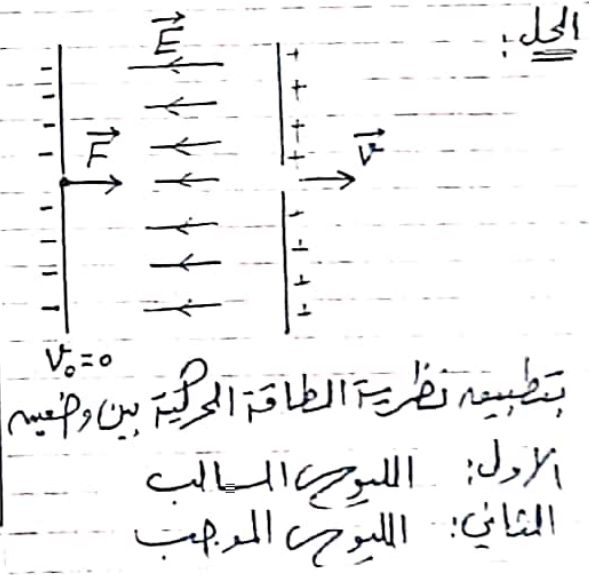 الحل:
E
- + 
- +
- +
- +
F v
- +
- +
- +
- +
V₀=0
بتطبيق نظرية الطاقة الحركية بين وضعين
الأول: اللبوس السالب
الثاني: اللبوس الموجب